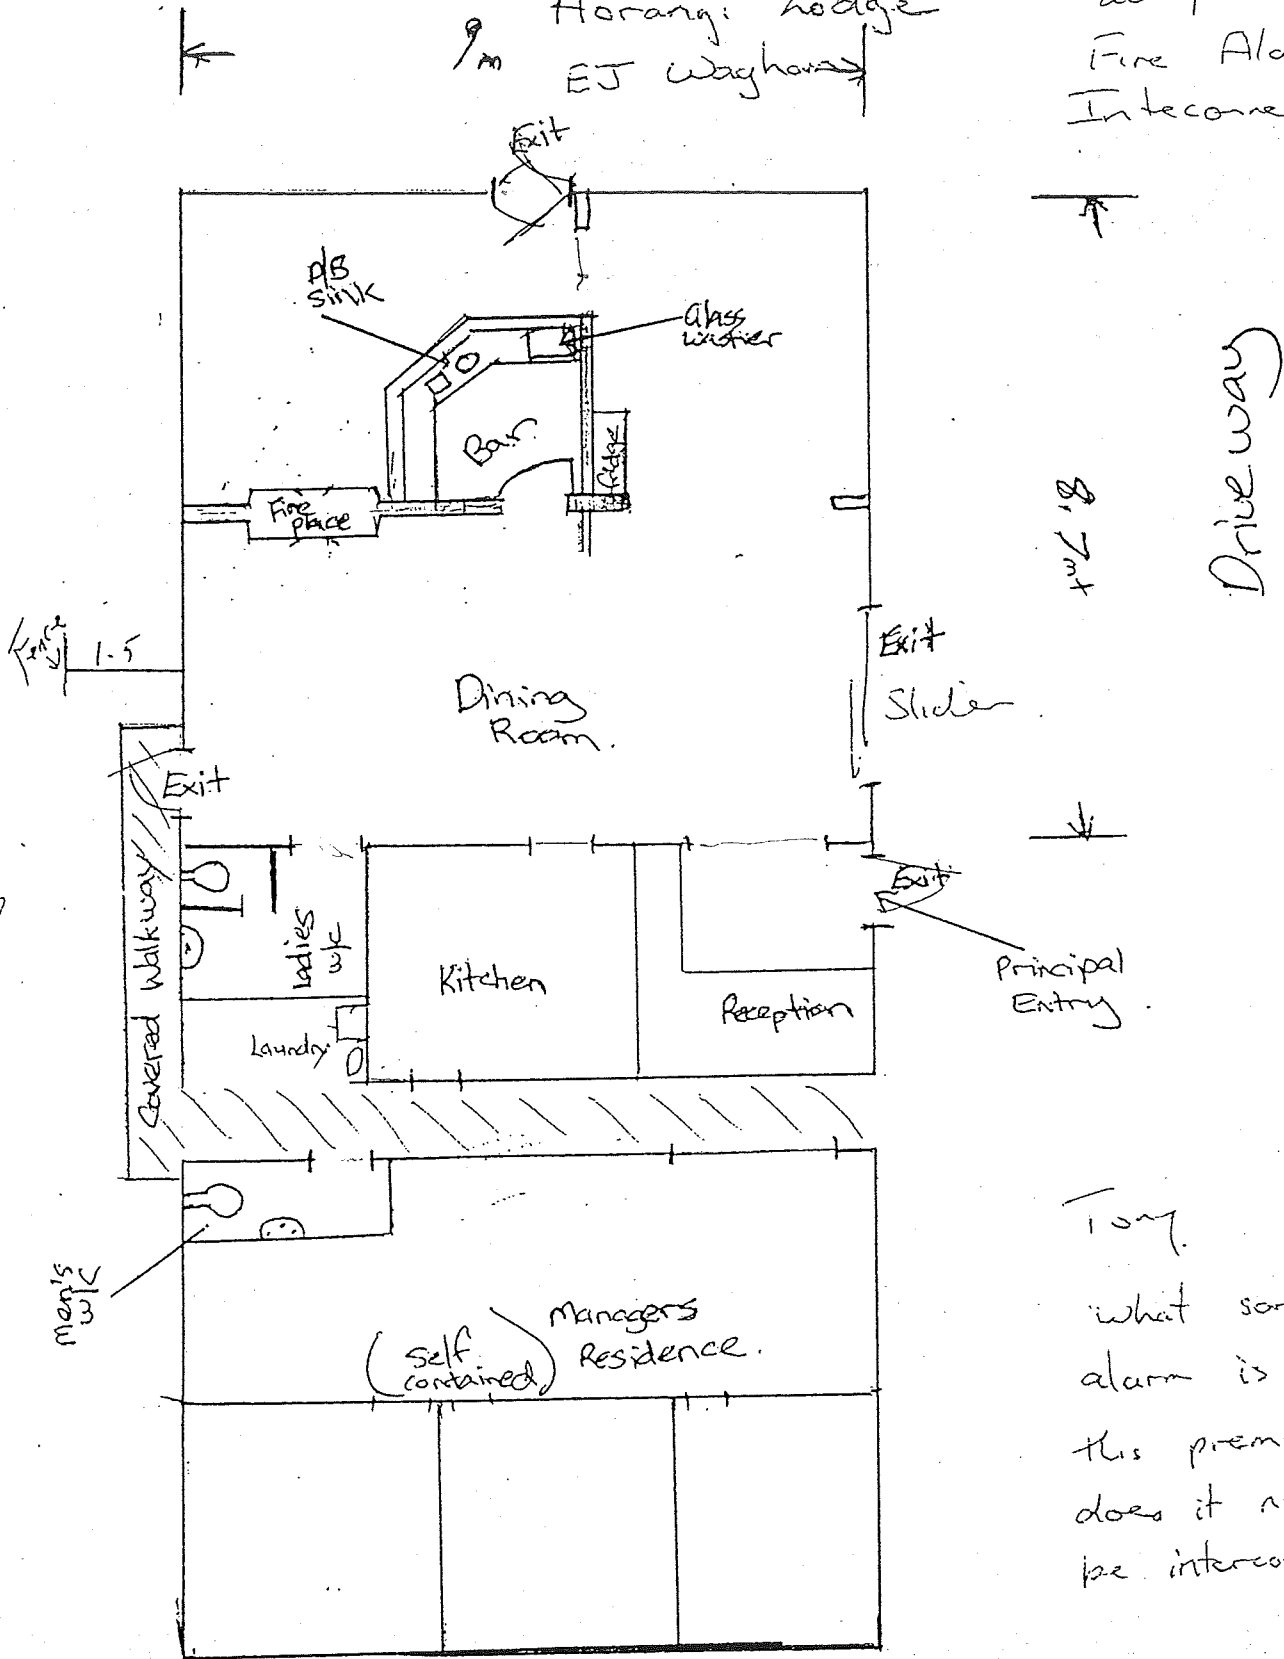 Horangi Lodge
9m
EJ Waghorn
Fire Alo
Inteconne
Exit
D/B
sink
Glass
washer
Bar.
fridge
Fire
place
8.7m
Driveway
fence
1.5
Exit
Slider.
Dining
Room.
Exit
Covered Walkway
Ladies
w/c
Kitchen
Reception
Exit
Principal
Entry.
Laundry.
Men's
w/c
(Self
contained)
Managers
Residence.
Tony.
what sor
alarm is
this prem
does it n
be interco